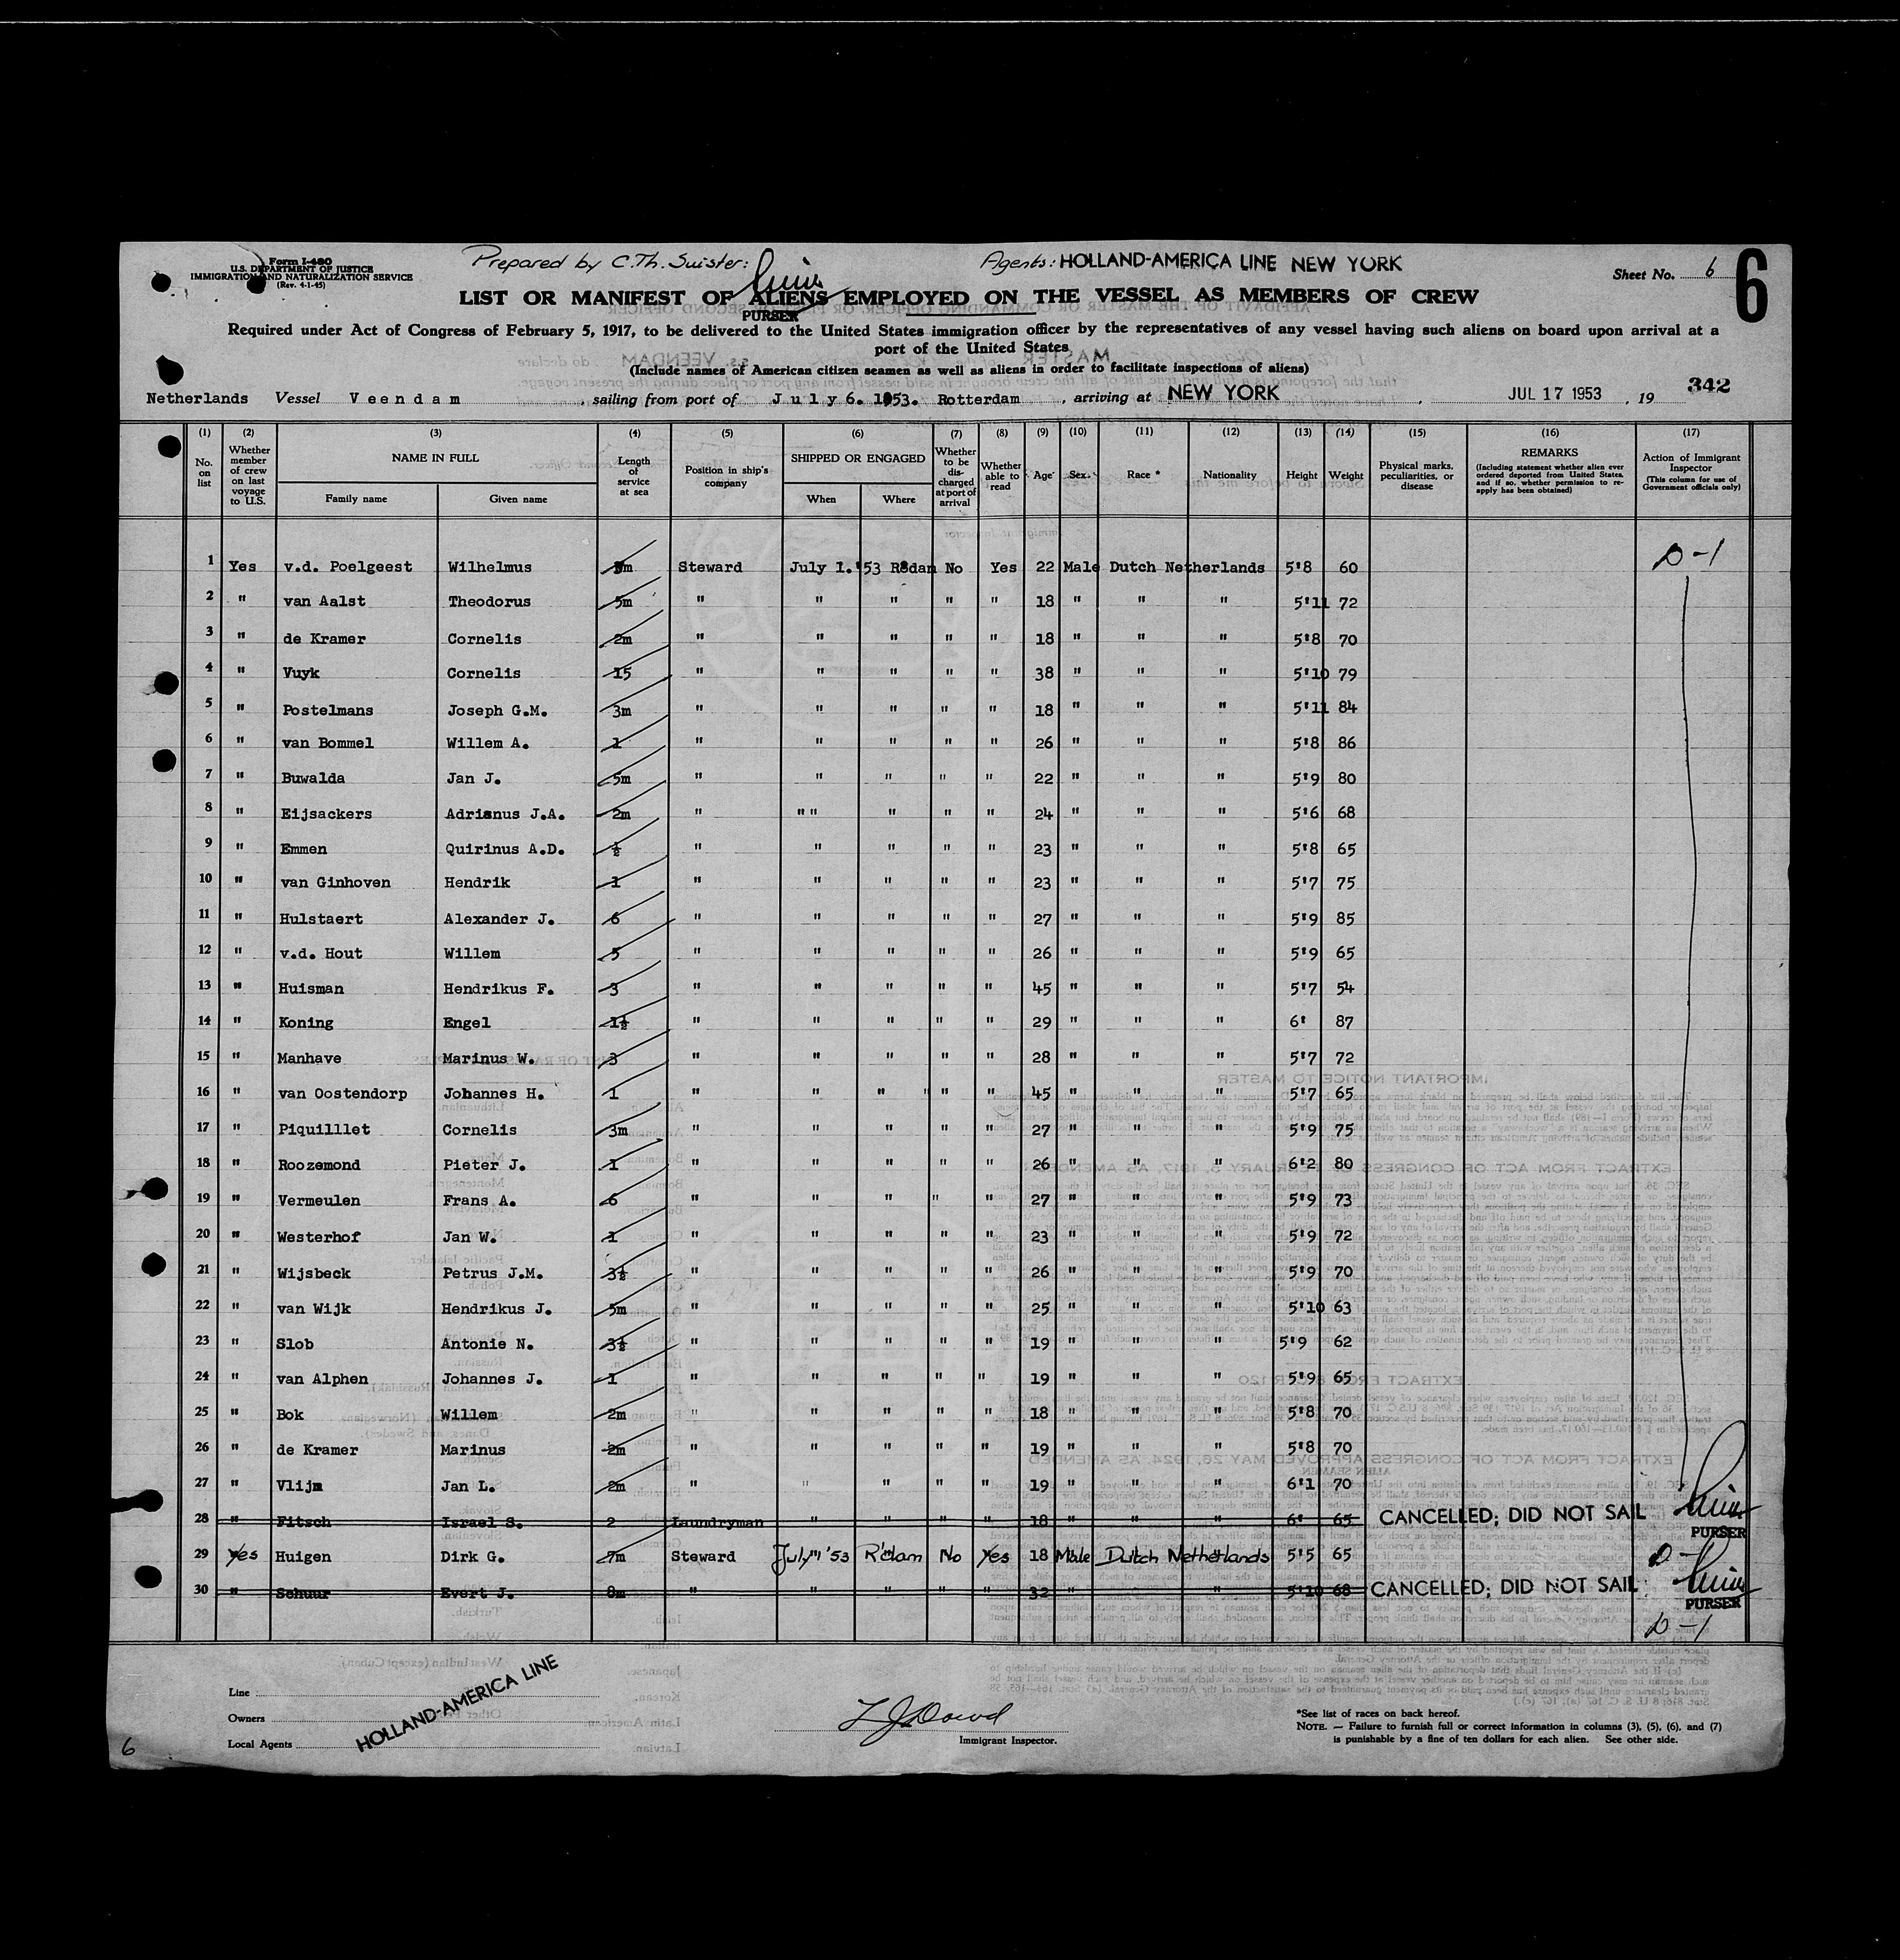 Form I-480
U.S. DEPARTMENT OF JUSTICE
IMMIGRATION AND NATURALIZATION SERVICE
(Rev. 4-1-45)
Prepared by C.Th. Suister:
Agents: HOLLAND-AMERICA LINE NEW YORK
Sheet No. 6
6
LIST OR MANIFEST OF ALIENS EMPLOYED ON THE VESSEL AS MEMBERS OF CREW
PURSER
Required under Act of Congress of February 5, 1917, to be delivered to the United States immigration officer by the representatives of any vessel having such aliens on board upon arrival at a
port of the United States
(Include names of American citizen seamen as well as aliens in order to facilitate inspections of aliens)
Netherlands Vessel Veendam, sailing from port of July 6. 1953. Rotterdam, arriving at NEW YORK, JUL 17 1953, 19 342
(1) (2) (3) (4) (5) (6) (7) (8) (9) (10) (11) (12) (13) (14) (15) (16) (17)
No. on list
Whether member of crew on last voyage to U.S.
NAME IN FULL
Family name
Given name
Length of service at sea
Position in ship's company
SHIPPED OR ENGAGED
When
Where
Whether to be discharged at port of arrival
Whether able to read
Age
Sex
Race *
Nationality
Height
Weight
Physical marks, peculiarities, or disease
REMARKS
(Including statement whether alien ever ordered deported from United States, and if so, whether permission to re-apply has been obtained)
Action of Immigrant Inspector
(This column for use of Government officials only)
1 Yes v.d. Poelgeest Wilhelmus m Steward July 1.'53 Rödam No Yes 22 Male Dutch Netherlands 5'8 60 D-1
2 " van Aalst Theodorus 5m " " " " " 18 " " " 5'11 72
3 " de Kramer Cornelis 2m " " " " " 18 " " " 5'8 70
4 " Vuyk Cornelis 15 " " " " " 38 " " " 5'10 79
5 " Postelmans Joseph G.M. 3m " " " " " 18 " " " 5'11 84
6 " van Bommel Willem A. 1 " " " " " 26 " " " 5'8 86
7 " Buwalda Jan J. 5m " " " " " 22 " " " 5'9 80
8 " Eijsackers Adrianus J.A. 2m " " " " " " 24 " " " 5'6 68
9 " Emmen Quirinus A.D. ½ " " " " " 23 " " " 5'8 65
10 " van Ginhoven Hendrik 1 " " " " " 23 " " " 5'7 75
11 " Hulstaert Alexander J. 6 " " " " " 27 " " " 5'9 85
12 " v.d. Hout Willem 5 " " " " " 26 " " " 5'9 65
13 " Huisman Hendrikus F. 3 " " " " " 45 " " " 5'7 54
14 " Koning Engel 1½ " " " " " 29 " " " 6' 87
15 " Manhave Marinus W. 3 " " " " " 28 " " " 5'7 72
16 " van Oostendorp Johannes H. 1 " " " " " " 45 " " " 5'7 65
17 " Piquilllet Cornelis 3m " " " " " 27 " " " 5'9 75
18 " Roozemond Pieter J. 1 " " " " " 26 " " " 6'2 80
19 " Vermeulen Frans A. 6 " " " " " 27 " " " 5'9 73
20 " Westerhof Jan W. 1 " " " " " 23 " " " 5'9 72
21 " Wijsbeck Petrus J.M. 3½ " " " " " 26 " " " 5'9 70
22 " van Wijk Hendrikus J. 5m " " " " " 25 " " " 5'10 63
23 " Slob Antonie N. 3½ " " " " " 19 " " " 5'9 62
24 " van Alphen Johannes J. 1 " " " " " 19 " " " 5'9 65
25 " Bok Willem 2m " " " " " 18 " " " 5'8 70
26 " de Kramer Marinus 2m " " " " " 19 " " " 5'8 70
27 " Vlijm Jan L. 2m " " " " " 19 " " " 6'1 70
28 " Fitsch Israel S. 2 Laundryman " " " " 18 " " " 6' 65 CANCELLED; DID NOT SAIL
PURSER
29 Yes Huigen Dirk G. 7m Steward July 1 '53 R'dam No Yes 18 Male Dutch Netherlands 5'5 65 D-
30 " Schuur Evert J. 8m " " " " " 32 " " 5'10 68 CANCELLED; DID NOT SAIL
PURSER
D-1
Line
Owners
Local Agents
HOLLAND-AMERICA LINE
Immigrant Inspector.
*See list of races on back hereof.
NOTE. — Failure to furnish full or correct information in columns (3), (5), (6), and (7)
is punishable by a fine of ten dollars for each alien. See other side.
6